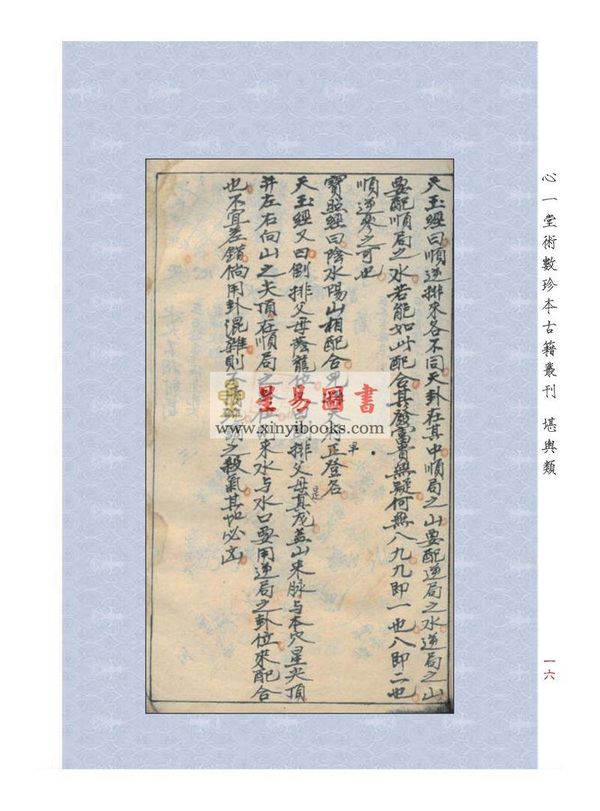 心一堂術數珍本古籍叢刊 堪輿類
一六
天玉經曰順逆排來各不同天卦在其中順局之山要配逆局之水逆局之山
要配順局之水若能如此配合其發富貴無疑何無八九九即一也八即二也
順逆之可也
寶照經曰陰水陽山相配合正登名
單
天玉經又曰倒排父母蔭龍位排父母真龍蓋山來脉与本穴星尖頂
是
并左右向山之尖頂在順局之來水与水口要用逆局之卦位來配合
也不宜差錯倘用卦混雜則之殺氣其地必凶
星易圖書
www.xinyibooks.com